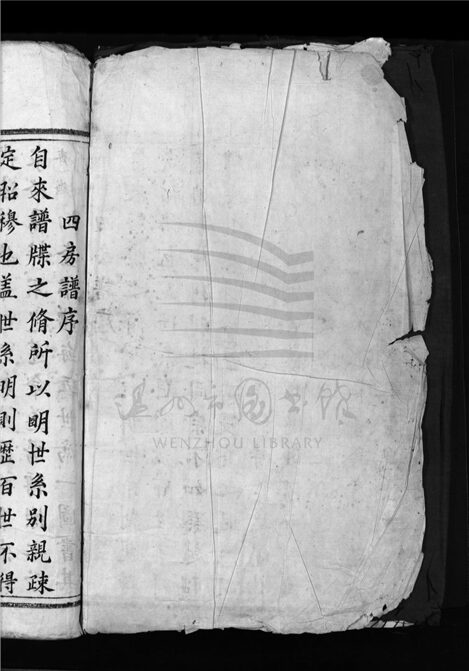 四房譜序
自來譜牒之脩所以明世系別親疎
定昭穆也盖世系明則歷百世不得
温州市图书馆
WENZHOU LIBRARY